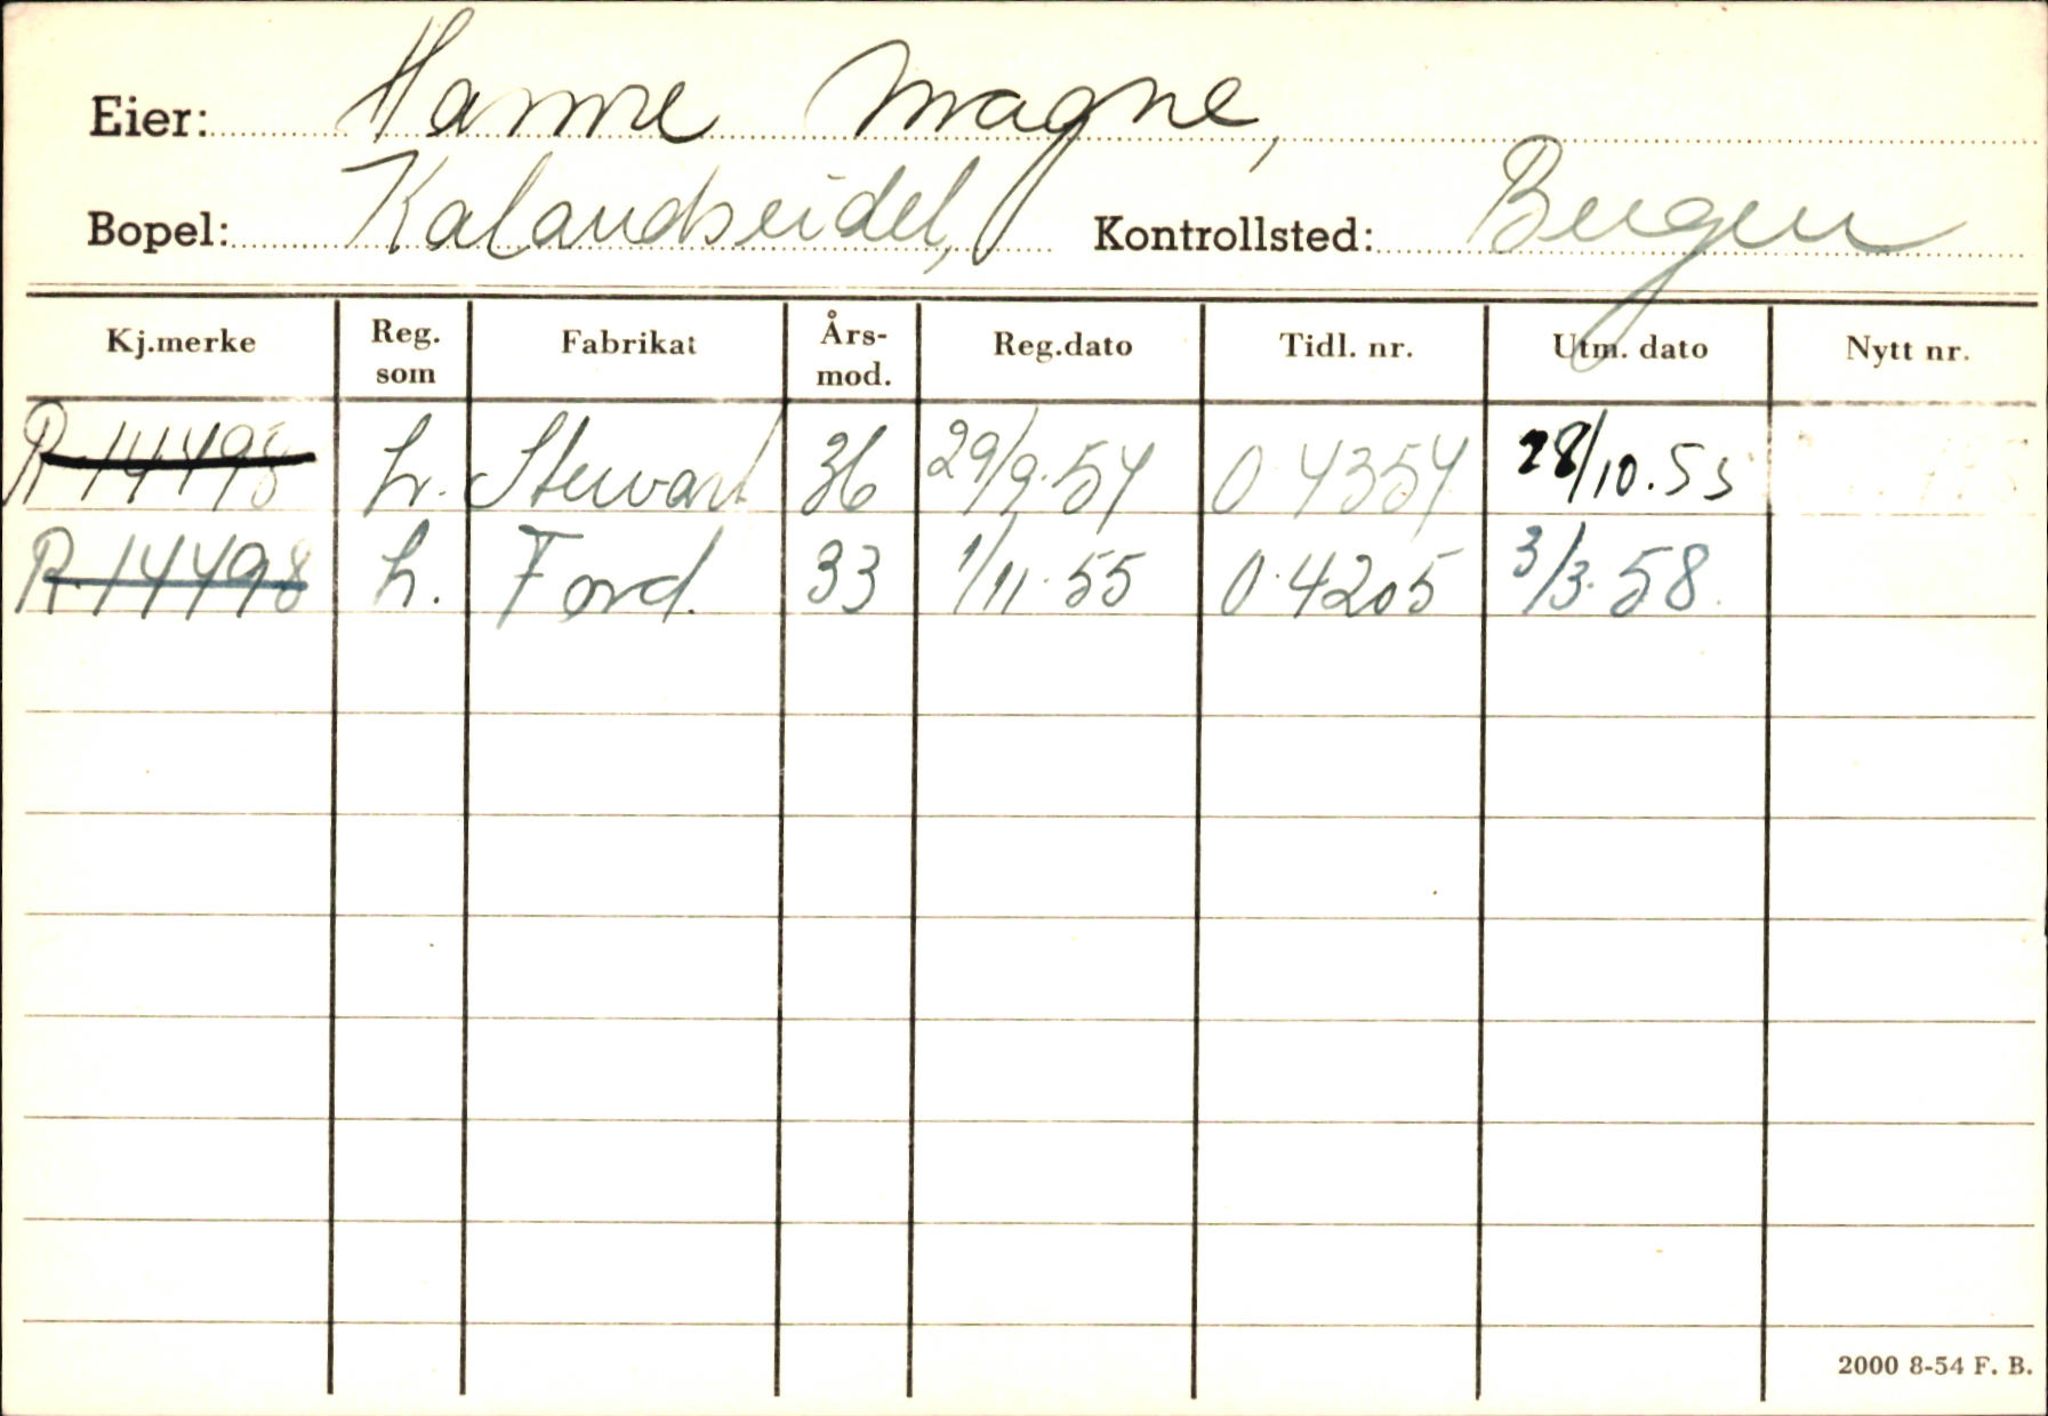 Eier: Hamre Magne,
Bopel: Kalandseidet, Kontrollsted: Bergen
Kj.merke Reg. som Fabrikat Års-mod. Reg.dato Tidl. nr. Utm. dato Nytt nr.
R-14498 L. Stewart 36 29/9.54 O.4354 28/10.55
R.14498 L. Ford. 33 1/11.55 O.4205 3/3.58.
2000 8-54 F. B.